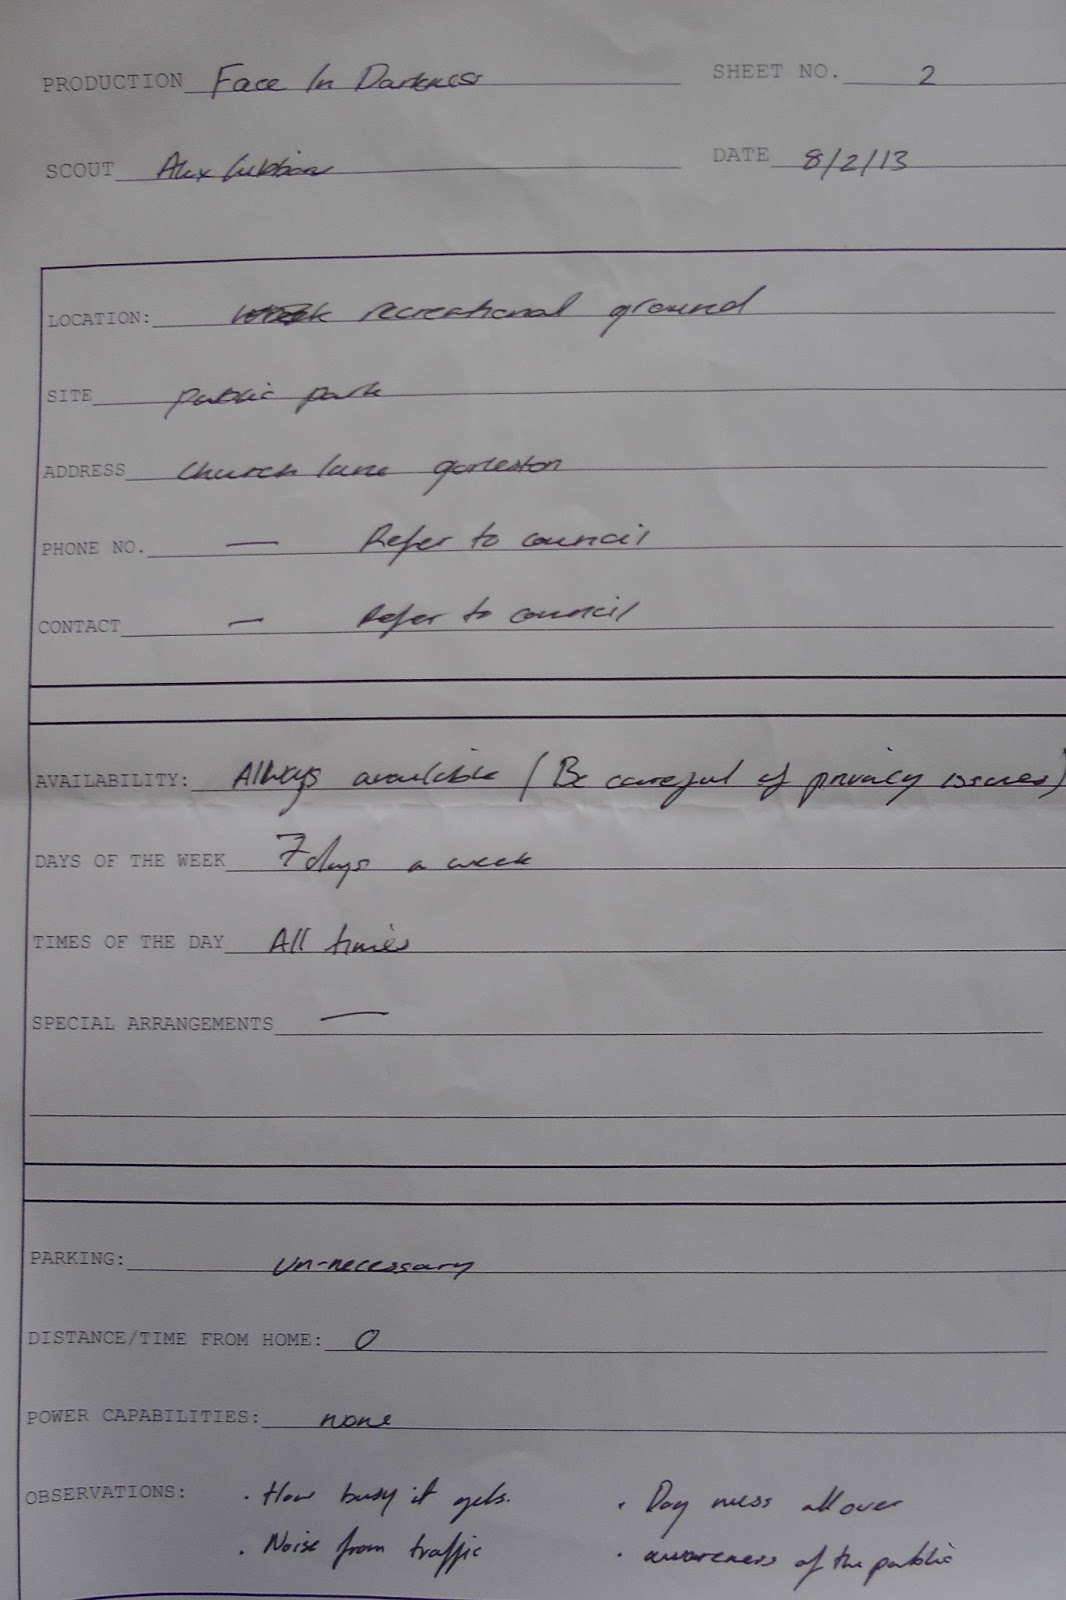 PRODUCTION Face In Darkness SHEET NO. 2
SCOUT Alex DATE 8/2/13
LOCATION: recreational ground
SITE public park
ADDRESS church lane gorleston
PHONE NO. — Refer to council
CONTACT — Refer to council
AVAILABILITY: Always available (Be careful of privacy issues)
DAYS OF THE WEEK 7 days a week
TIMES OF THE DAY All times
SPECIAL ARRANGEMENTS —
PARKING: un-necessary
DISTANCE/TIME FROM HOME: 0
POWER CAPABILITIES: none
OBSERVATIONS: · How busy it gets. · mess all over
· Noise from traffic · awareness of the public